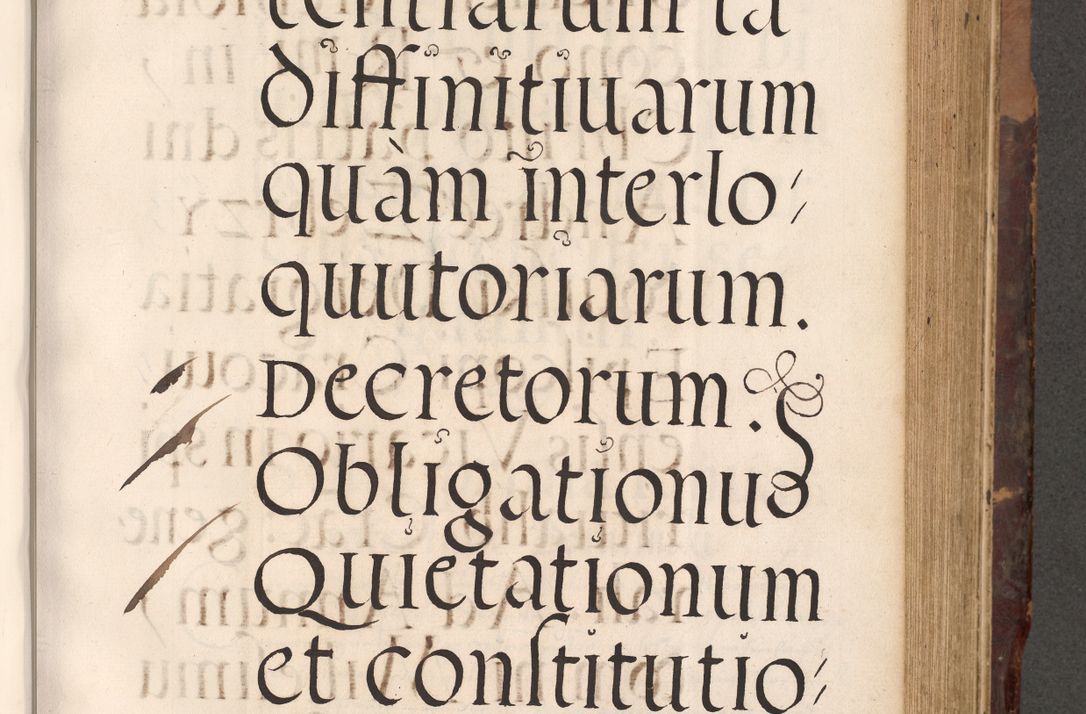 tentiarum ta
diffinitiuarum
quàm interlo⸗
quutoriarum.
Decretorum.
Obligationuʒ
Quietationum
et conſtitutio⸗